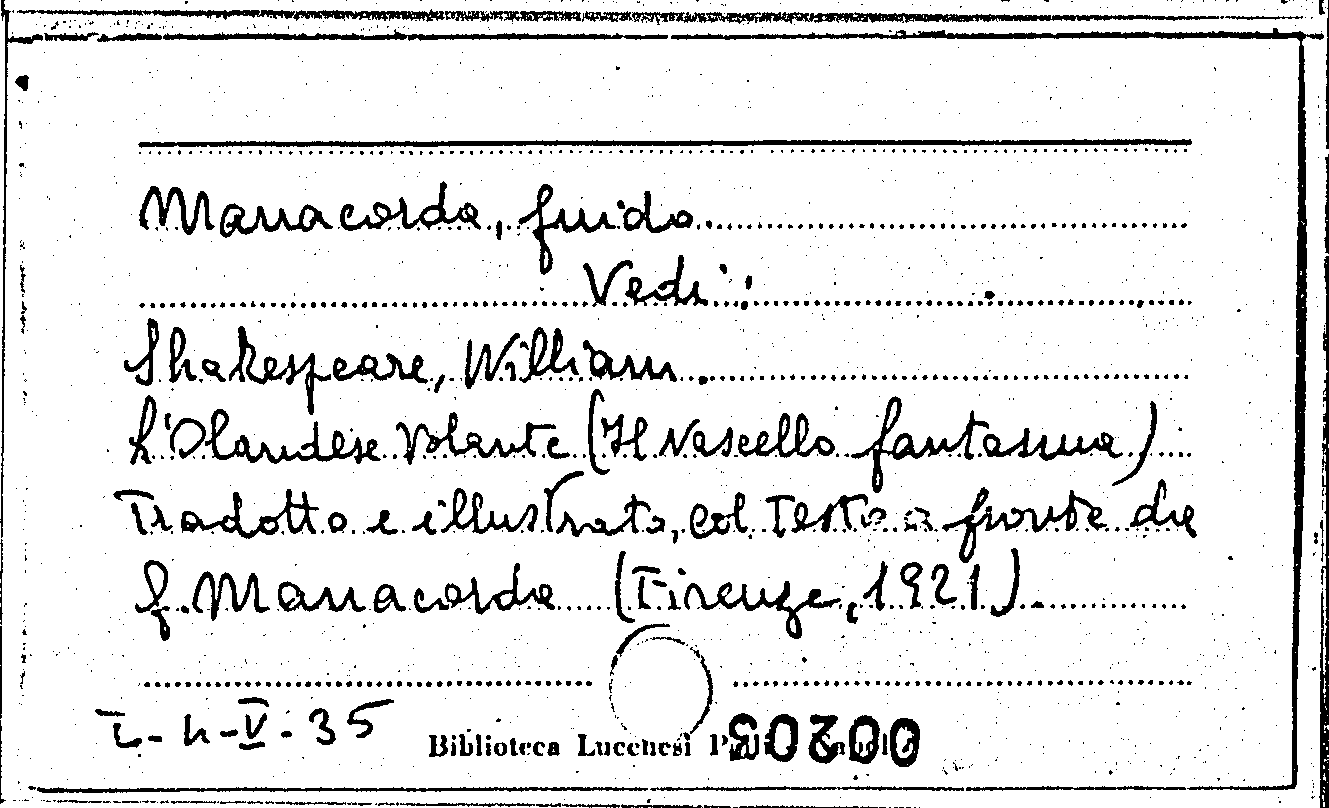 Manacorda, Guido.
Vedi:
Shakespeare, William.
L'Olandese Volante (Il Vascello fantasma)
Tradotto e illustrato, col testo a fronte da
G. Manacorda (Firenze, 1921).
I-h-V-35
Biblioteca Lucchesi
00203